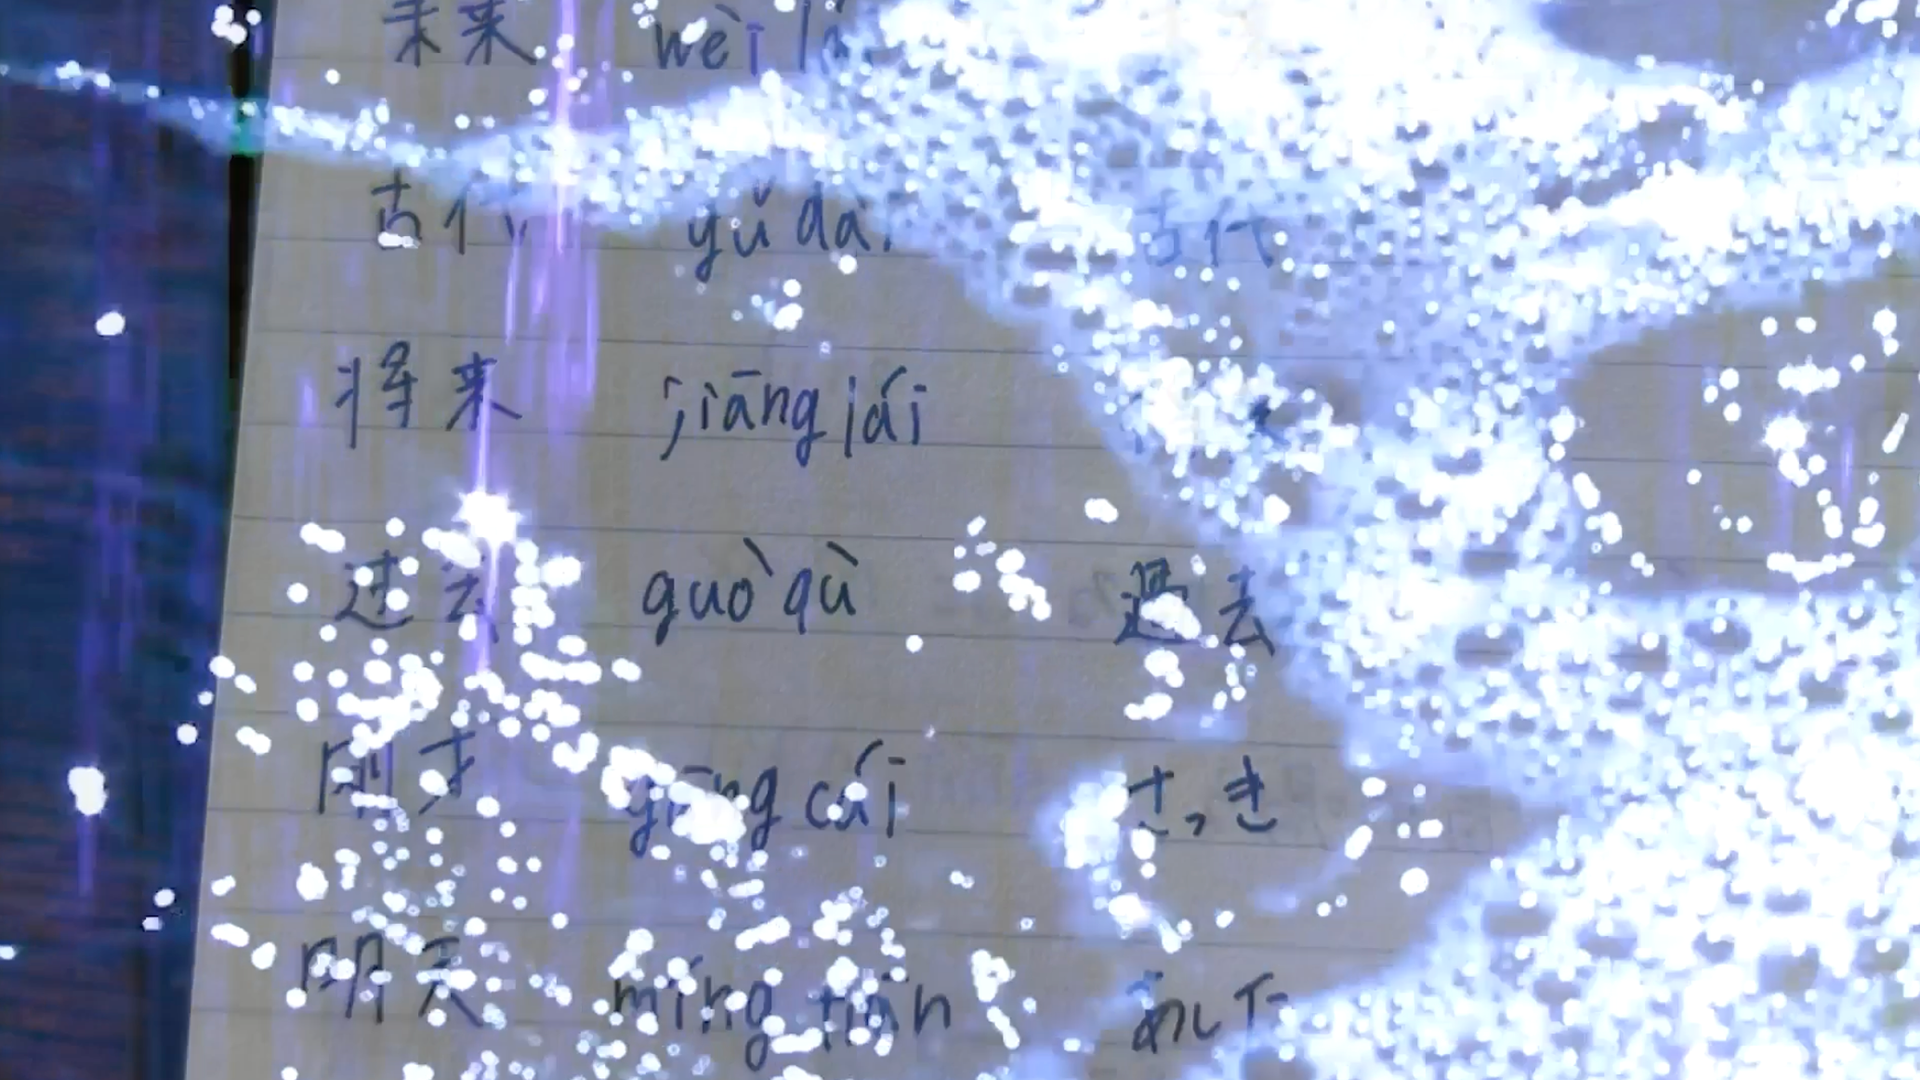 未来 wèi lá
古代 yǔ dài 古代
将来 jiāng lái
过去 guò qù 過去
刚才 gāng cái さっき
明天 míng tiān あした